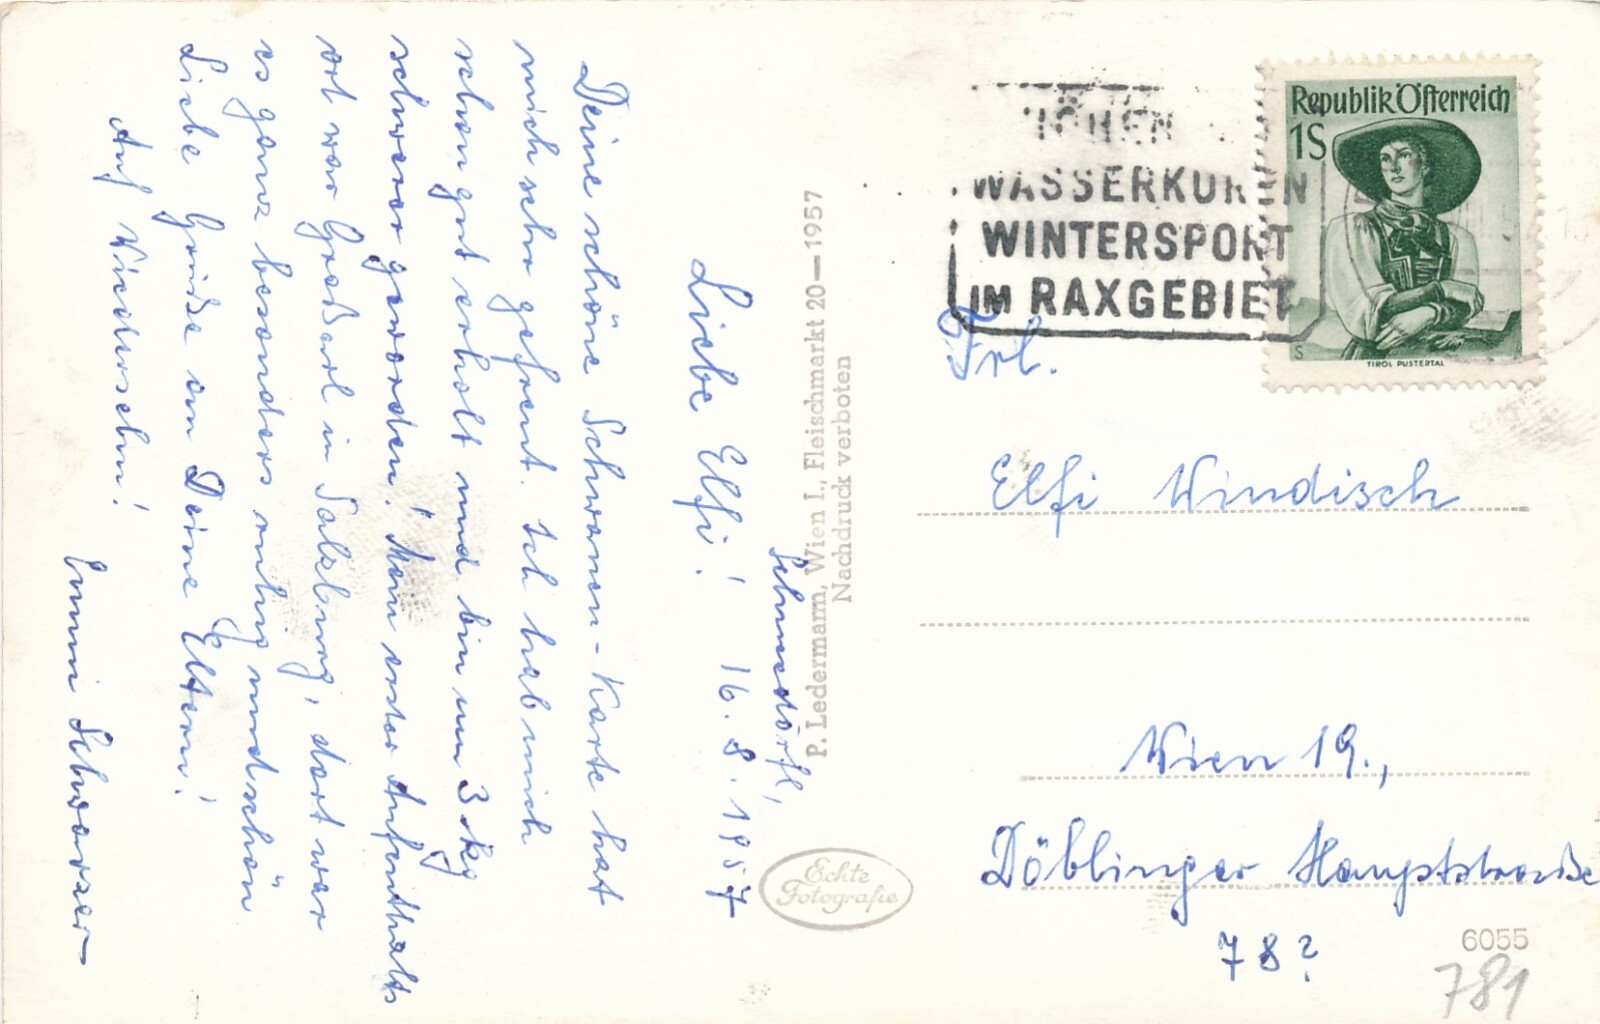 Liebe Elfi! 16.8.1957
Deine schöne Schwanen-Karte hat
mich sehr gefreut. Ich hab mich
schon gut erholt und bin um 3 kg
schwerer geworden. Mein erster Aufenthalts
ort war Großarl in Salzburg, dort war
es ganz besonders ruhig und schön
Liebe Grüße an Deine Eltern!
Auf Wiedersehn!
P. Ledermann, Wien I., Fleischmarkt 20—1957
Nachdruck verboten
Echte
Fotografie
WASSERKUREN
WINTERSPORT
IM RAXGEBIET
Republik Österreich
1S
S
TIROL PUSTERTAL
Frl.
Elfi Windisch
Wien 19.,
Döblinger Hauptstrasse
78?
6055
781